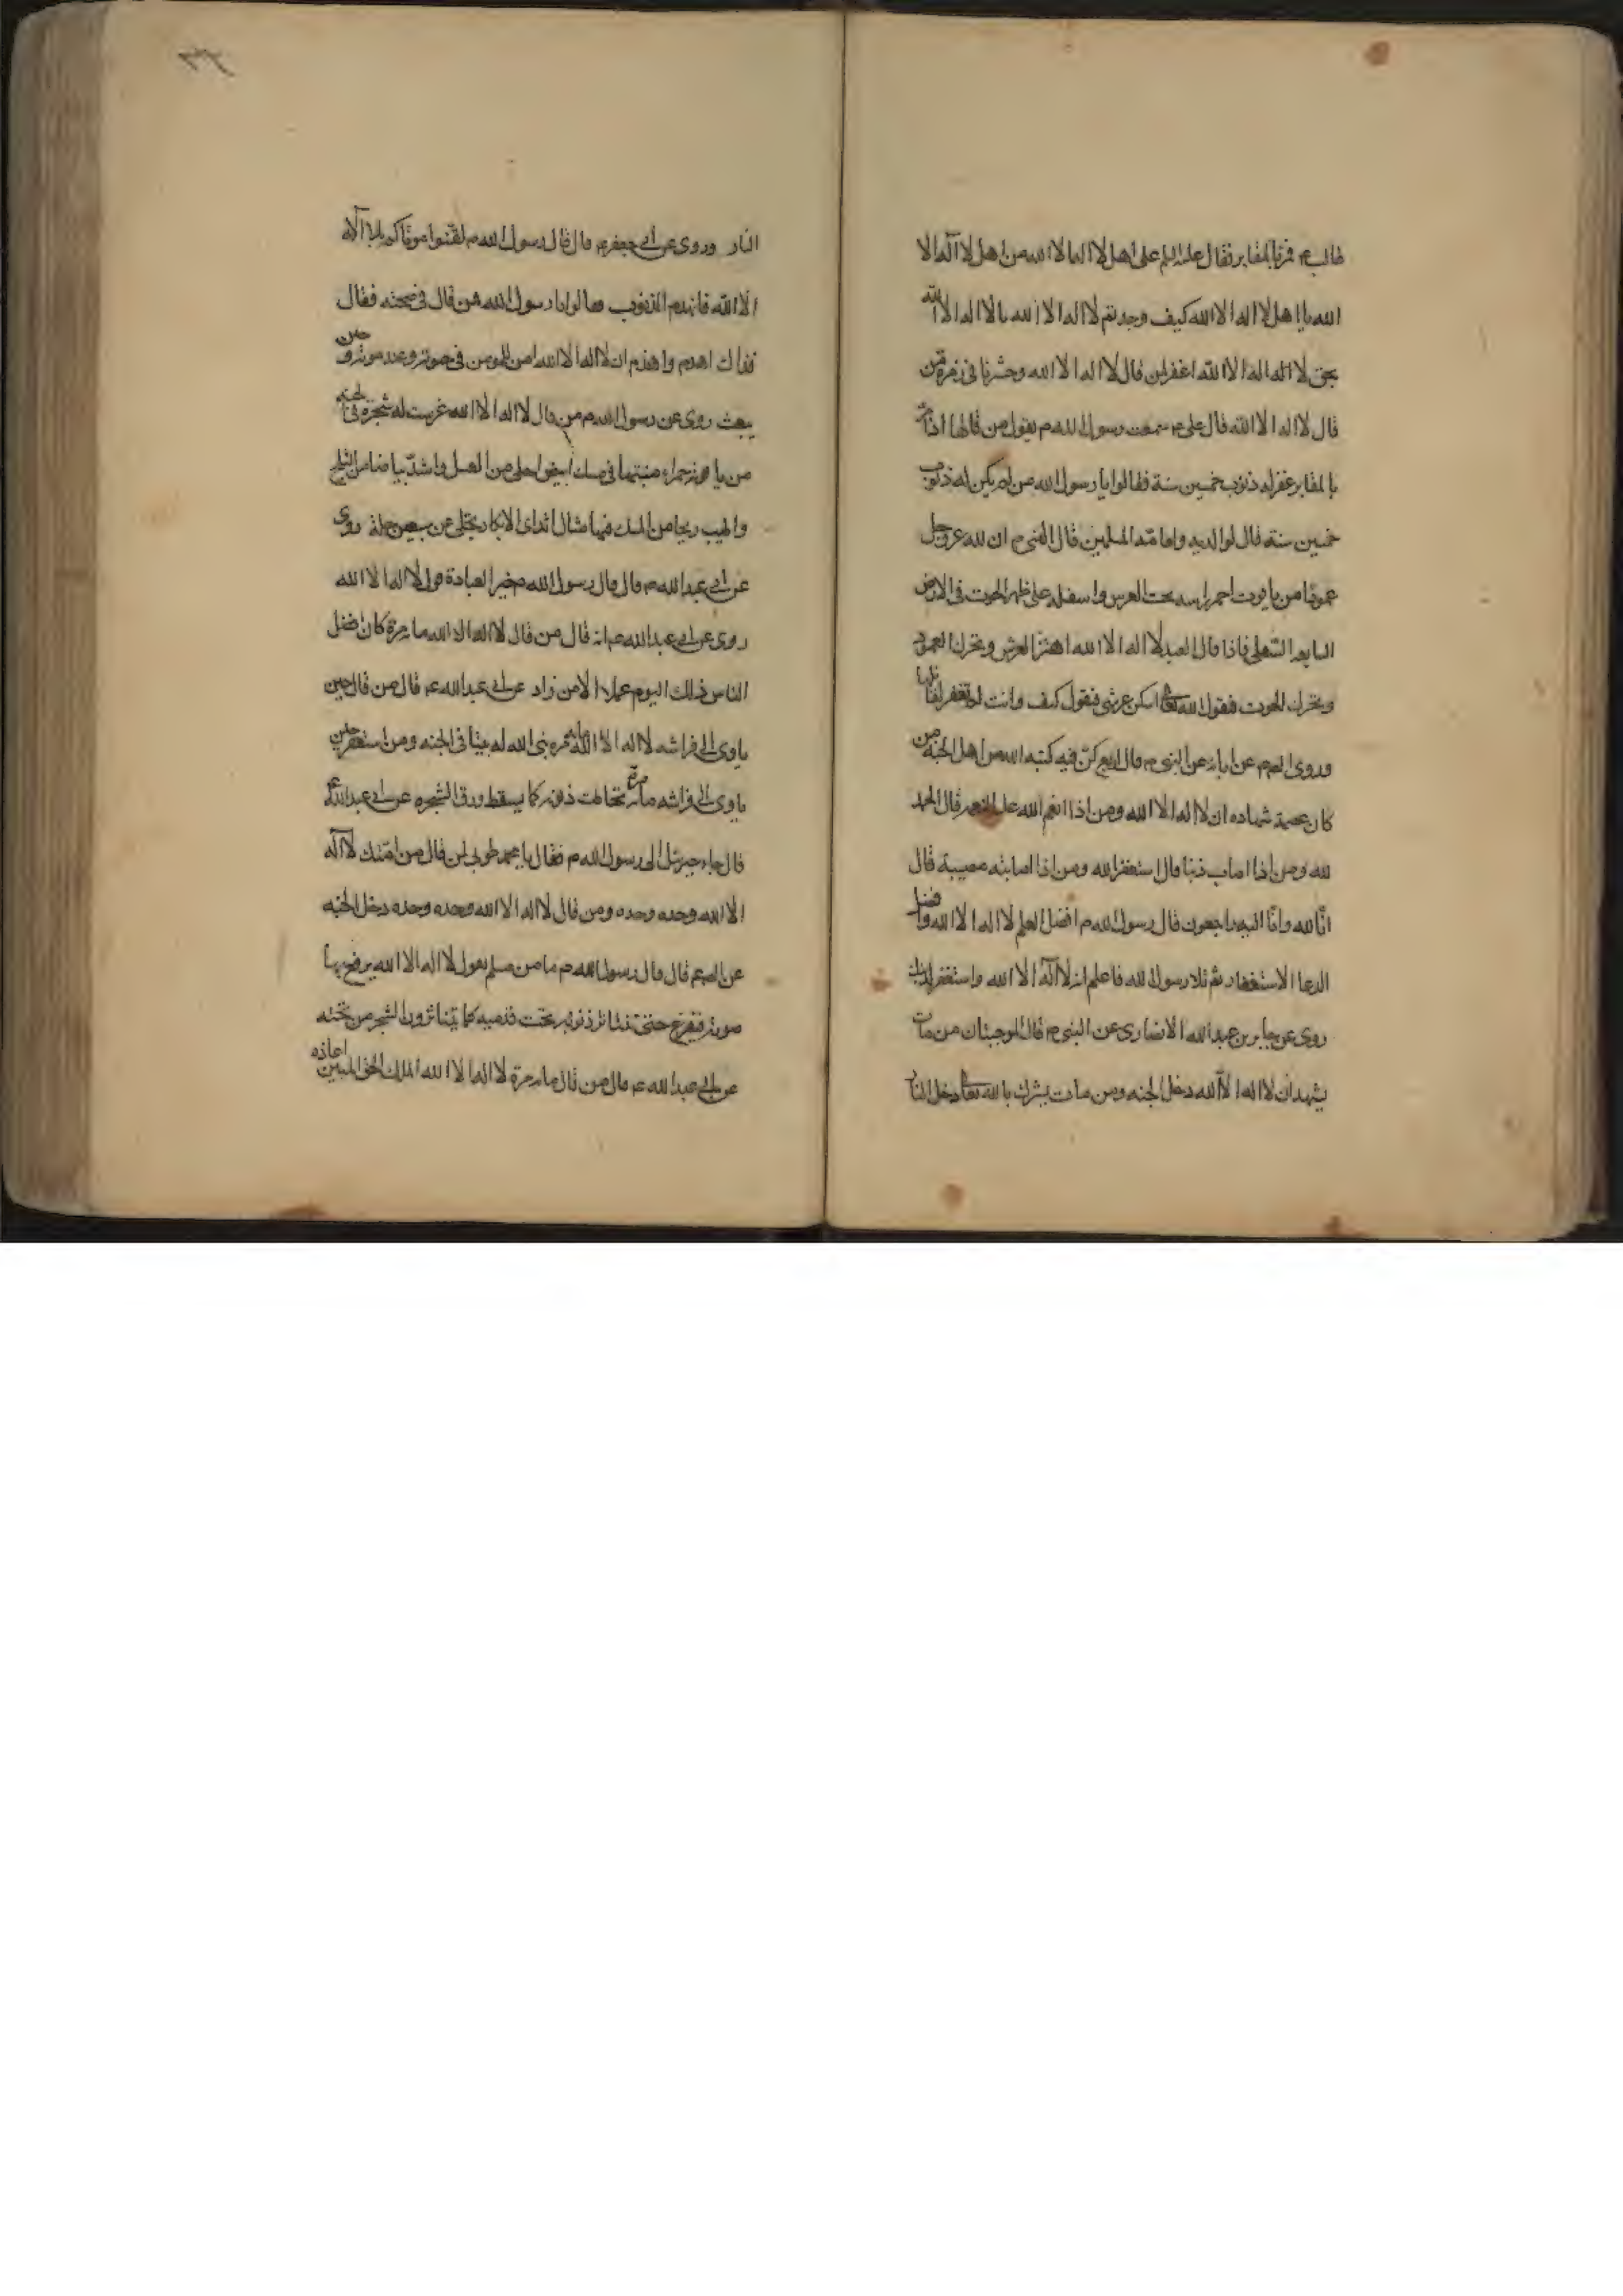 طالب ع فمر بالمقابر فقال علي السلم على اهل لا اله الا الله من اهل لا اله الا
الله يا اهل لا اله الا الله كيف وجدتم لا اله الا الله يا لا اله الا الله
بحق لا اله الا الله اغفر لمن قال لا اله الا الله وحشرنا فى زمرة من
قال لا اله الا الله قال على ع سمعت رسول الله ص يقول من قالها اذا مر
بالمقابر غفر له ذنوب خمسين سنة فقالوا يا رسول الله من لم يكن له ذنوب
خمسين سنة قال لوالديه وعامة المسلمين قال النبى ص ان لله عز وجل
عمودا من ياقوت احمر راسه تحت العرش واسفله على ظهر الحوت فى الارض
السابعه السفلى فاذا قال العبد لا اله الا الله اهتز العرش وتحرك العمود
وتحرك الحوت فيقول الله تعالى اسكن عرشى فيقول كيف وانت لم تغفر لقائلها
وروى عن ابائه عن النبى ص قال اربع من كن فيه كتبه الله من اهل الجنة
كان عصمته شهاده ان لا اله الا الله ومن اذا انعم الله عليه النعمه قال الحمد
لله ومن اذا اصاب ذنبا قال استغفر الله ومن اذا اصابته مصيبة قال
انا لله وانا اليه راجعون قال رسول الله ص افضل العلم لا اله الا الله وافضل
الدعا الاستغفار ثم تلا رسول الله فاعلم انه لا اله الا الله واستغفر لذنبك
روى عن جابر بن عبد الله الانصارى عن النبى ص قال الموجبتان من مات
يشهد ان لا اله الا الله دخل الجنه ومن مات يشرك بالله تعالى دخل النار
٣٢
النار وروى عن ابى جعفر ع قال قال رسول الله ص لقنوا موتاكم بلا اله
الا الله فانها تهدم الذنوب فقالوا يا رسول الله فمن قال فى صحته فقال
فذاك اهدم واهدم ان لا اله الا الله امن للمومن فى حيوته وعند موته وحين
يبعث روى عن رسول الله ص من قال لا اله الا الله غرست له شجرة فى الجنه
من ياقوته حمراء منبتها فى مسك ابيض احلى من العسل واشد بياضا من الثلج
واطيب ريحا من المسك فيها امثال اثداى الابكار تختلى عن سبعين حلة روى
عن ابى عبد الله ع قال قال رسول الله ص خير العبادة قول لا اله الا الله
روى عن ابى عبد الله ع انه قال من قال لا اله الا الله مايه مرة كان افضل
الناس ذلك اليوم عملا الا من زاد عن ابى عبد الله ع قال من قال حين
ياوى الى فراشه لا اله الا الله مايه مره بنى الله له بيتا فى الجنه ومن استغفر حين
ياوى الى فراشه مايه مرة تحاتت ذنوبه كما يسقط ورق الشجره عن ابى عبد الله ع
قال جاء جبرئيل الى رسول الله ص فقال يا محمد طوبى لمن قال من امتك لا اله
الا الله وحده وحده ومن قال لا اله الا الله وحده وحده وحده دخل الجنه
قال قال رسول الله ص ما من مسلم يقول لا اله الا الله يرفع بها
صوته فيفرغ حتى تتناثر ذنوبه تحت قدميه كما يتناثر ورق الشجر من تحته
عن ابى عبد الله ع قال من قال مايه مرة لا اله الا الله الملك الحق المبين اعاذه